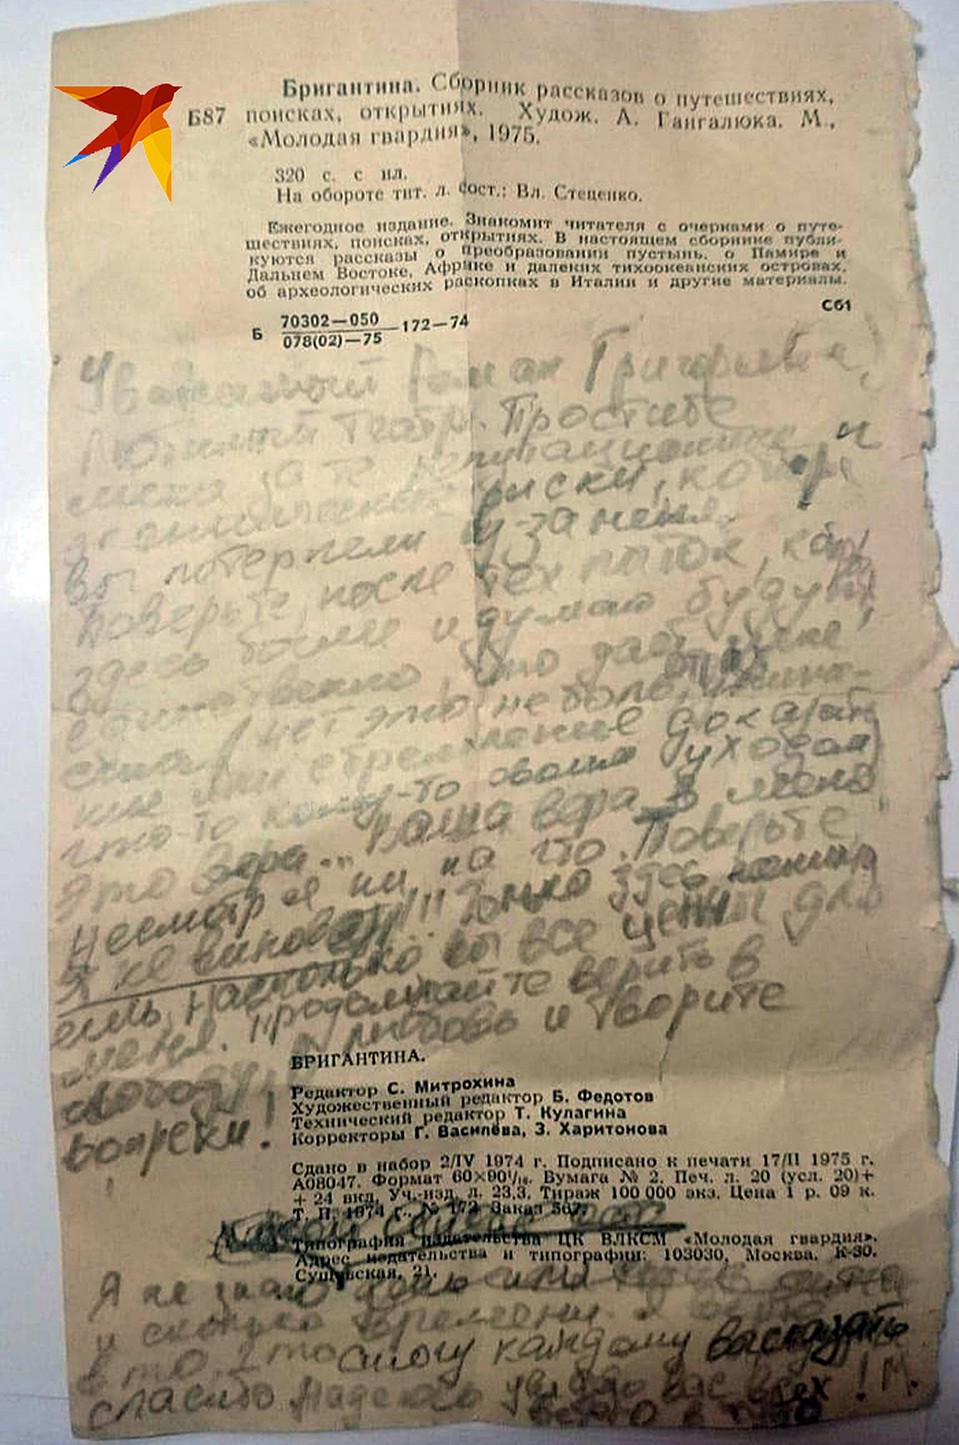 Бригантина. Сборник рассказов о путешествиях,
Б87 поисках, открытиях. Худож. А. Гангалюка. М.,
«Молодая гвардия», 1975.
320 с. с ил.
На обороте тит. л. сост.: Вл. Стеценко.
Ежегодное издание. Знакомит читателя с очерками о путе-
шествиях, поисках, открытиях. В настоящем сборнике публи-
куются рассказы о преобразовании пустынь, о Памире и
Дальнем Востоке, Африке и далеких тихоокеанских островах,
об археологических раскопках в Италии и другие материалы.
Сб1
Б 70302—050
078(02)—75
—172—74
Уважаемый Роман Григорьевич,
Любимый театр. Простите
меня за те репутационные и
риски, которые
вы потерпели из-за меня.
Поверьте, после тех пыток, которые
здесь были и думаю будут,
единственно, что даёт мне
силы (нет это не боль,
стремление доказать
что-то кому-то своим уходом)
Это вера... Ваша вера в меня
несмотря ни на что. Поверьте
я не виноват!!! Только здесь понима
ешь насколько вы все ценны для
меня. Продолжайте верить в
свободу, любовь и творите
вопреки!
БРИГАНТИНА.
Редактор С. Митрохина
Художественный редактор Б. Федотов
Технический редактор Т. Кулагина
Корректоры Г. Василёва, З. Харитонова
Сдано в набор 2/IV 1974 г. Подписано к печати 17/II 1975 г.
А08047. Формат 60×90¹/₁₆. Бумага № 2. Печ. л. 20 (усл. 20)+
+ 24 вкл. Уч.-изд. л. 23,3. Тираж 100 000 экз. Цена 1 р. 09 к.
Т. П. 1974 г., № 172. Заказ 567.
сейчас час
Типография издательства ЦК ВЛКСМ «Молодая гвардия».
Адрес издательства и типографии: 103030, Москва, К-30,
Сущевская, 21.
Я не знаю день или
и сколько времени. Я верю
в то, что смогу каждому высказать
спасибо. Надеюсь увижу вас всех! М.